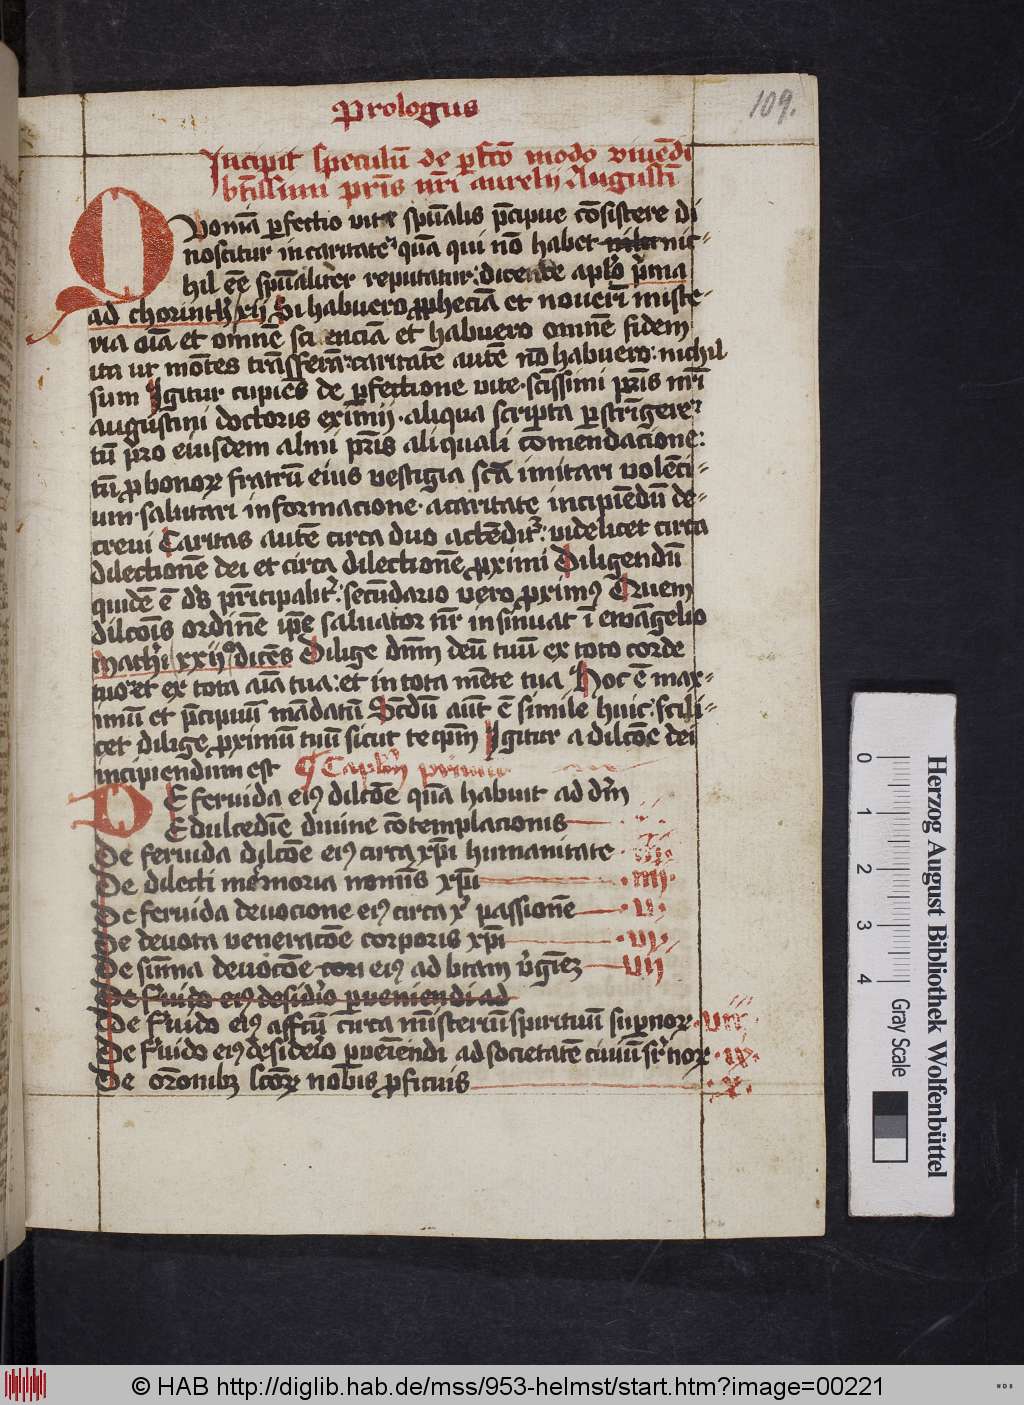 Prologus
109.
Incipit speculū de ꝑfcō modo viuēdi
btīssimi pr̄is nr̄i aurelij Augustī
Quoniā ꝑfectio vite spūalis p̄cipue cōsistere di
noscitur in caritate quā qui nō habet nic-
hil eē spūaliter reputatur: dicende aplō p̄ma
ad chorinth xiij Si habuero ꝓpheciā et nouerī miste-
ria oīa et omnē scienciā et habuero omnē fidem
ita ut mōtes trāsferā: caritatē autē nō habuero: nichil
sum Igitur cupiēs de ꝑfectione vite scīssimi pr̄is nr̄i
augustini doctoris eximij aliqua scripta ꝑstrīgere
tū pro eiusdem almi pr̄is aliquali cōmendacione:
tū ꝓ bonoꝝ fratrū eius vestigia scā imitari volēci-
um salutari informacione a caritate incipiēdū de-
creui Caritas autē circa duo actēdit᷑: videlicet circa
dilectionē dei et circa dilectionē ꝓximi Diligendū
quidē ē dꝰ prīcipalit᷑: secūdario vero ꝓximꝰ Quem
dilcōis ordinē ip̄e saluator nr̄ insinuat ī ewāgelio
Mathi xxij dicēs Dilige dn̄m deū tuū ex toto corde
tuo et ex tota aīa tua: et in tota mēte tua Hoc ē max-
imū et p̄cipuū mādatū Scdū aūt ē simile huic: scili-
cet dilige ꝓximū tuū sicut teip̄m Igitur a dilcōe dei
incipiendum est Caplm primū
DE feruida eiꝰ dilcōe quā habuit ad dn̄m
DE dulcedīe diuine cōtemplacionis
De feruida dilcōe eiꝰ circa xp̄i humanitatē iij
De dilecti memoria nominis xp̄i iiij
De feruida deuocione eiꝰ circa xp̄i passionē v
De deuota veneracōe corporis xp̄i vi
De sūma deuocōe cordis eiꝰ ad btam v̓gīeꝫ vij
De f̓uido eiꝰ desid̓io ꝑueniendi ad
De f̓uido eiꝰ affcū circa mīsteriū spirituū suꝑnoꝝ viij
De f̓uido eiꝰ desiderio ꝑueīendi ad societatē ciuiū sup̓noꝝ ix
De orōnibꝫ sctōꝝ nobis ꝓficuis x
0 1 2 3 4
Gray Scale
Herzog August Bibliothek Wolfenbüttel
© HAB http://diglib.hab.de/mss/953-helmst/start.htm?image=00221